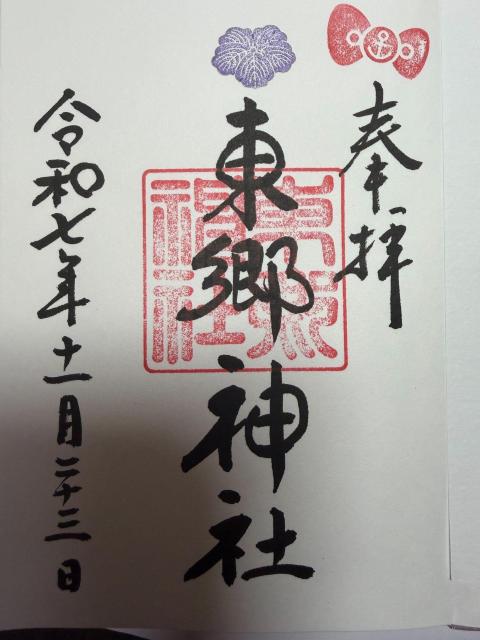 奉拝
東郷神社
東郷神社
令和七年十一月二十三日